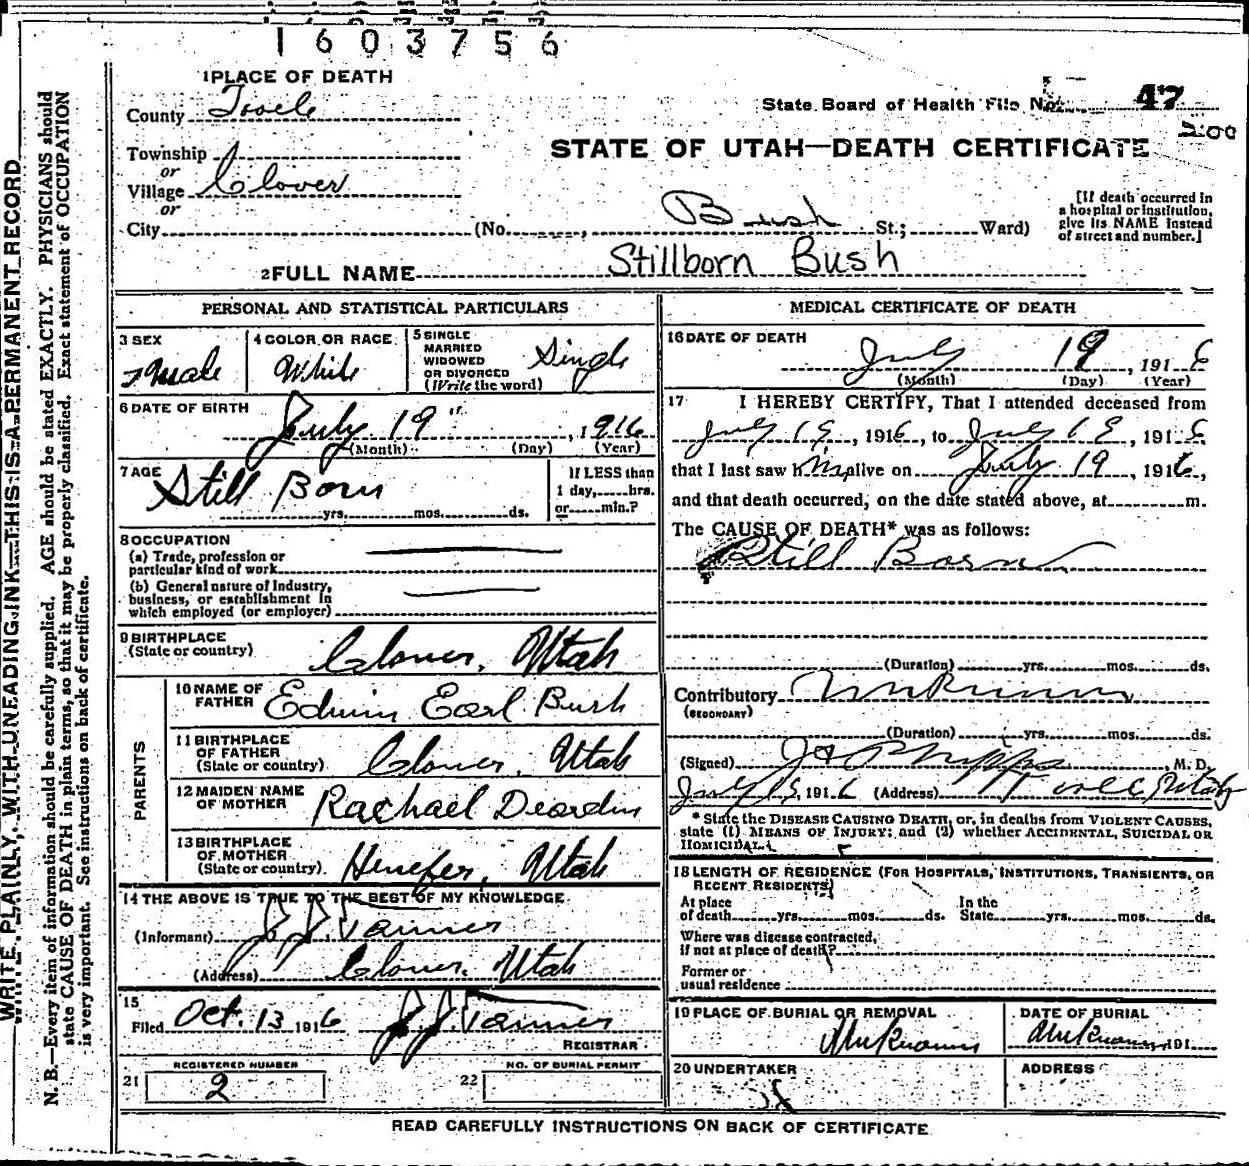 1603756
1 PLACE OF DEATH
County Tooele
State Board of Health File No. 47
200
Township
or
Village Clover
or
City (No. , Bush St.; Ward)
STATE OF UTAH—DEATH CERTIFICATE
[If death occurred in
a hospital or institution,
give its NAME instead
of street and number.]
2 FULL NAME Stillborn Bush
PERSONAL AND STATISTICAL PARTICULARS
3 SEX
Male
4 COLOR OR RACE
White
5 SINGLE
MARRIED
WIDOWED
OR DIVORCED
(Write the word)
Single
6 DATE OF BIRTH
July 19", 1916
(Month) (Day) (Year)
7 AGE
Still Born
yrs. mos. ds.
If LESS than
1 day, hrs.
or min.?
8 OCCUPATION
(a) Trade, profession or
particular kind of work
(b) General nature of industry,
business, or establishment in
which employed (or employer)
9 BIRTHPLACE
(State or country)
Clover, Utah
PARENTS
10 NAME OF
FATHER
Edwin Earl Bush
11 BIRTHPLACE
OF FATHER
(State or country)
Clover, Utah
12 MAIDEN NAME
OF MOTHER
Rachael Dearden
13 BIRTHPLACE
OF MOTHER
(State or country)
Henefer, Utah
14 THE ABOVE IS TRUE TO THE BEST OF MY KNOWLEDGE
(Informant) J. J. Tanner
(Address) Clover, Utah
15
Filed Oct. 13 1916 J. J. Tanner
REGISTRAR
REGISTERED NUMBER
21 2
NO. OF BURIAL PERMIT
22
MEDICAL CERTIFICATE OF DEATH
16 DATE OF DEATH
July 19, 1916
(Month) (Day) (Year)
17 I HEREBY CERTIFY, That I attended deceased from
July 19, 1916, to July 19, 1916
that I last saw him alive on July 19, 1916,
and that death occurred, on the date stated above, at m.
The CAUSE OF DEATH* was as follows:
Still Born
(Duration) yrs. mos. ds.
Contributory Unknown
(SECONDARY)
(Duration) yrs. mos. ds.
(Signed) Phipps, M. D.
July 15, 1916 (Address) Tooele, Utah
* State the DISEASE CAUSING DEATH, or, in deaths from VIOLENT CAUSES,
state (1) MEANS OF INJURY; and (2) whether ACCIDENTAL, SUICIDAL OR
HOMICIDAL.
18 LENGTH OF RESIDENCE (FOR HOSPITALS, INSTITUTIONS, TRANSIENTS, OR
RECENT RESIDENTS)
At place
of death yrs. mos. ds.
In the
State yrs. mos. ds.
Where was disease contracted,
if not at place of death?
Former or
usual residence
19 PLACE OF BURIAL OR REMOVAL
Unknown
DATE OF BURIAL
Unknown, 191
20 UNDERTAKER
ADDRESS
READ CAREFULLY INSTRUCTIONS ON BACK OF CERTIFICATE
WRITE PLAINLY, WITH UNFADING INK—THIS IS A PERMANENT RECORD
N. B.—Every item of information should be carefully supplied. AGE should be stated EXACTLY. PHYSICIANS should
state CAUSE OF DEATH in plain terms, so that it may be properly classified. Exact statement of OCCUPATION
is very important. See instructions on back of certificate.